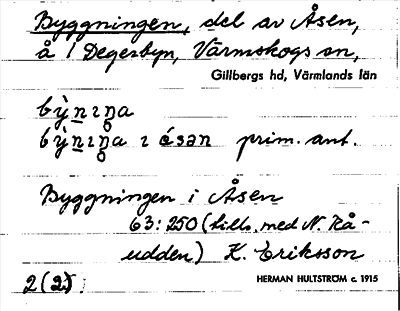 Byggningen, del av Åsen,
å i Degerbyn, Värmskogs sn,
Gillbergs hd, Värmlands län
bỳnıŋa
bỳnıŋa ı ósan prim. ant.
Byggningen i Åsen
63:250 (tills. med N. Rå-
udden) K. Eriksson
2(2): HERMAN HULTSTRÖM c. 1915